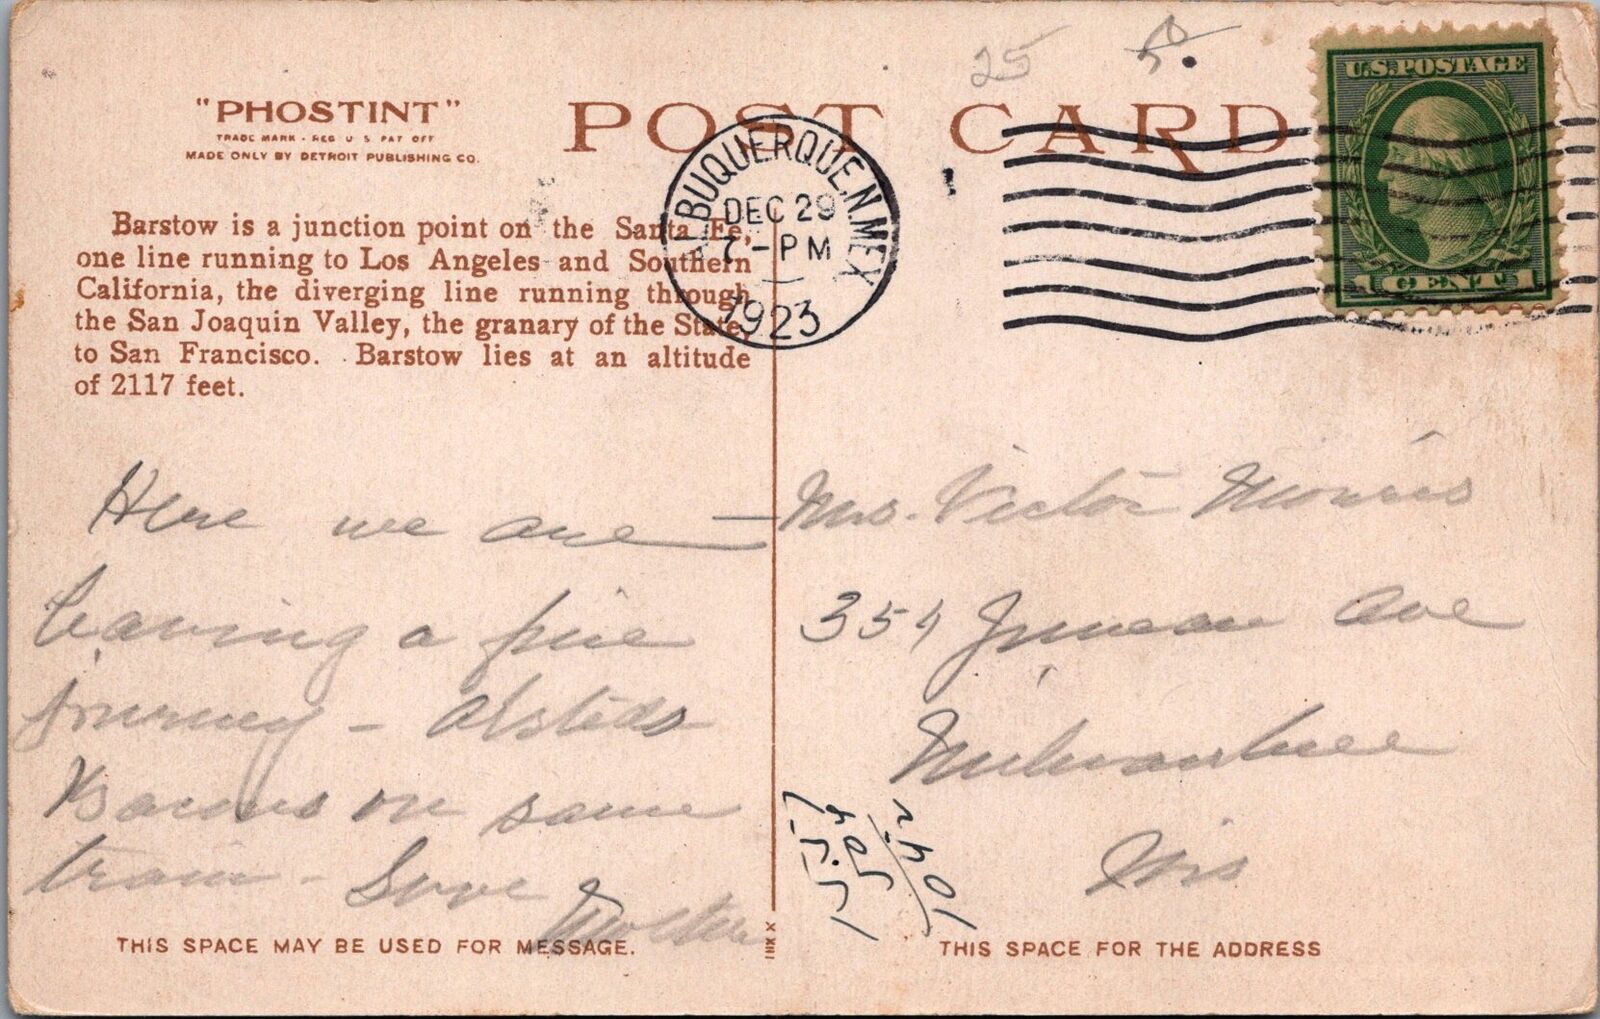 25
"PHOSTINT"
TRADE MARK - REG U S PAT OFF
MADE ONLY BY DETROIT PUBLISHING CO.
POST CARD
U.S. POSTAGE
1 CENT 1
ALBUQUERQUE, N. MEX
DEC 29
7 - PM
1923
Barstow is a junction point on the Santa Fe,
one line running to Los Angeles and Southern
California, the diverging line running through
the San Joaquin Valley, the granary of the State,
to San Francisco. Barstow lies at an altitude
of 2117 feet.
Here we are —
having a fine
journey -
on same
train - Love
Mother
Mrs. Victor Morris
354 Juneau Ave
Milwaukee
Wis
THIS SPACE MAY BE USED FOR MESSAGE.
THIS SPACE FOR THE ADDRESS